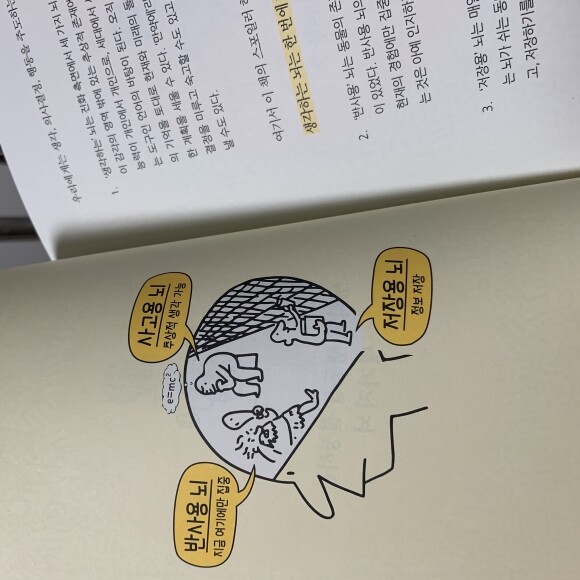 우리에게는 생각, 의사결정, 행동을 주도하는
1. '생각하는 뇌는 진화 측면에서 세 가지 뇌
이 감각의 영역 밖에 있는 추상적 존재에
능력이 개인에서 개인으로, 세대에서 세
는 도구인 언어의 바탕이 된다. 오직
의 기억을 토대로 현재와 미래의
한 계획을 세울 수 있다.
결정을 미루고 숙고할 수도 있고
낼 수도 있다.
여기서 이 책의 스포일러
생각하는 뇌는 한 번에
2. '반사용' 뇌는 동물의 존
이 있었다. 반사용 뇌의
현재의 경험에만 집중
는 것은 아예 인지하
3. '저장용' 뇌는 매일
는 뇌가 쉬는 동
고, 저장하기를
반사용 뇌
지금 여기에만 집중
e=mc²
사고용 뇌
추상적 생각 가능
저장용 뇌
정보 저장